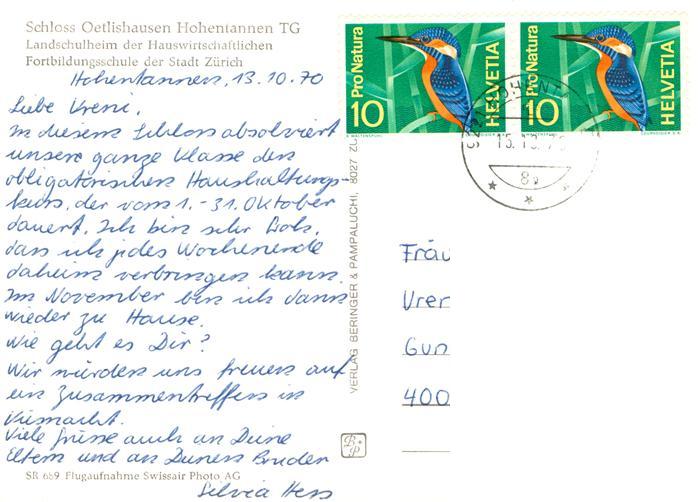 Schloss Oetlishausen Hohentannen TG
Landschulheim der Hauswirtschaftlichen
Fortbildungsschule der Stadt Zürich
Hohentannen, 13.10.70
Liebe Vreni,
In diesem Schloss absolviert
unsere ganze Klasse den
obligatorischen Haushaltungs-
kurs, der vom 1.-31. Oktober
dauert. Ich bin sehr froh,
dass ich jedes Wochenende
daheim verbringen kann.
Im November bin ich dann
wieder zu Hause.
Wie geht es Dir?
Wir würden uns freuen auf
ein Zusammentreffen in
Küsnacht.
Viele Grüsse auch an Deine
Eltern und an Deinen Bruder
Silvia Hess
SR 689 Flugaufnahme Swissair Photo AG
VERLAG BERINGER & PAMPALUCHI, 8027 ZÜ
Pro Natura
10
HELVETIA
COURVOISIER S.A.
Pro Natura
10
HELVETIA
COURVOISIER S.A.
8g
Fräu
Vrer
Gun
400